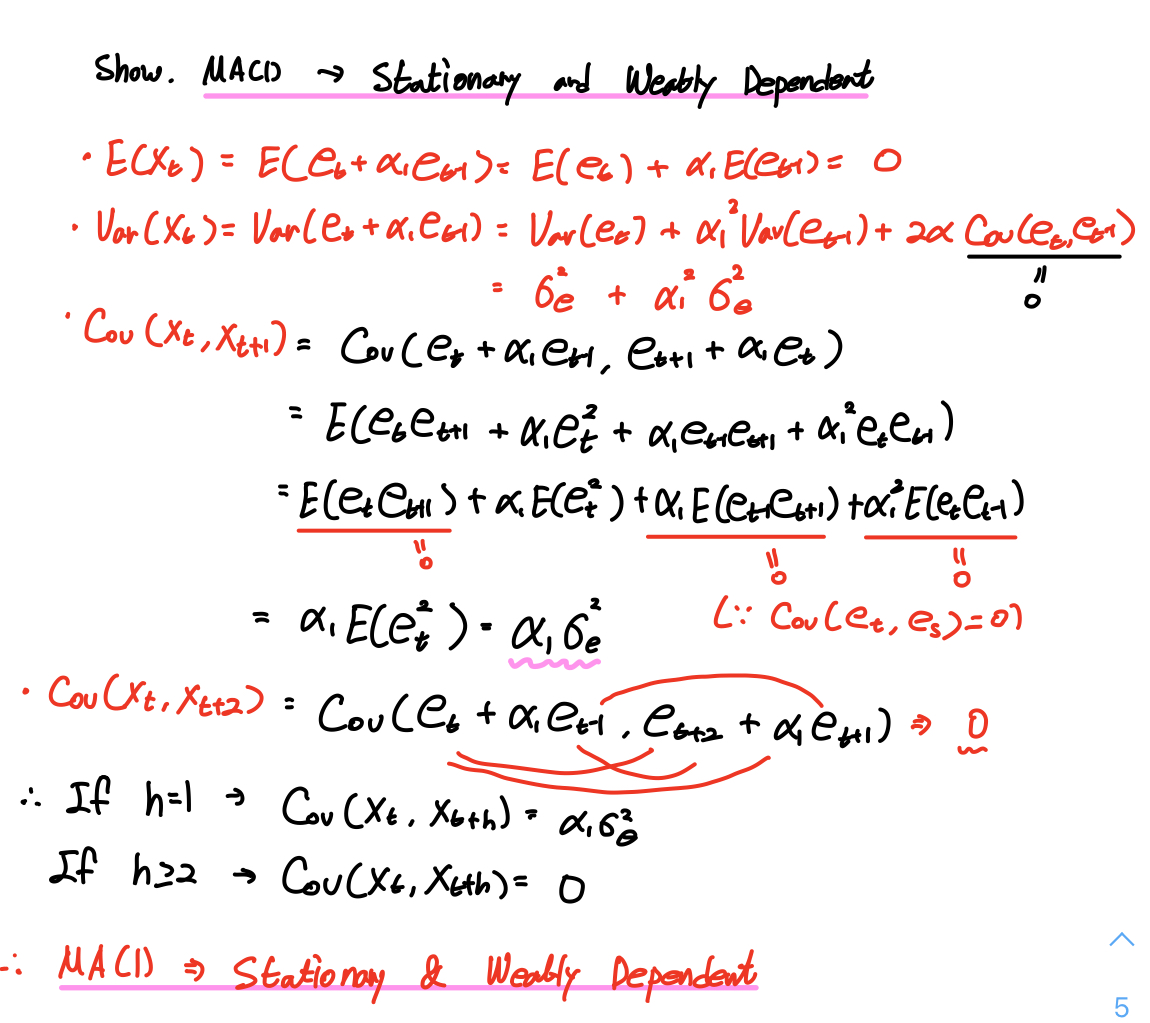 Show. MA(1) → Stationary and Weakly Dependent
· E(Xₜ) = E(eₜ + α₁eₜ₋₁) = E(eₜ) + α₁E(eₜ₋₁) = 0
· Var(Xₜ) = Var(eₜ + α₁eₜ₋₁) = Var(eₜ) + α₁²Var(eₜ₋₁) + 2α Cov(eₜ, eₜ₋₁)
= σₑ² + α₁²σₑ²
"
0
· Cov(Xₜ, Xₜ₊₁) = Cov(eₜ + α₁eₜ₋₁, eₜ₊₁ + α₁eₜ)
= E(eₜeₜ₊₁ + α₁eₜ² + α₁eₜ₋₁eₜ₊₁ + α₁²eₜeₜ₋₁)
= E(eₜeₜ₊₁) + α₁E(eₜ²) + α₁E(eₜ₋₁eₜ₊₁) + α₁²E(eₜeₜ₋₁)
" " "
0 0 0
= α₁E(eₜ²) = α₁σₑ² (∵ Cov(eₜ, eₛ) = 0)
· Cov(Xₜ, Xₜ₊₂) = Cov(eₜ + α₁eₜ₋₁, eₜ₊₂ + α₁eₜ₊₁) ⇒ 0
∴ If h=1 → Cov(Xₜ, Xₜ₊ₕ) = α₁σₑ²
If h≥2 → Cov(Xₜ, Xₜ₊ₕ) = 0
∴ MA(1) ⇒ Stationary & Weakly Dependent
5